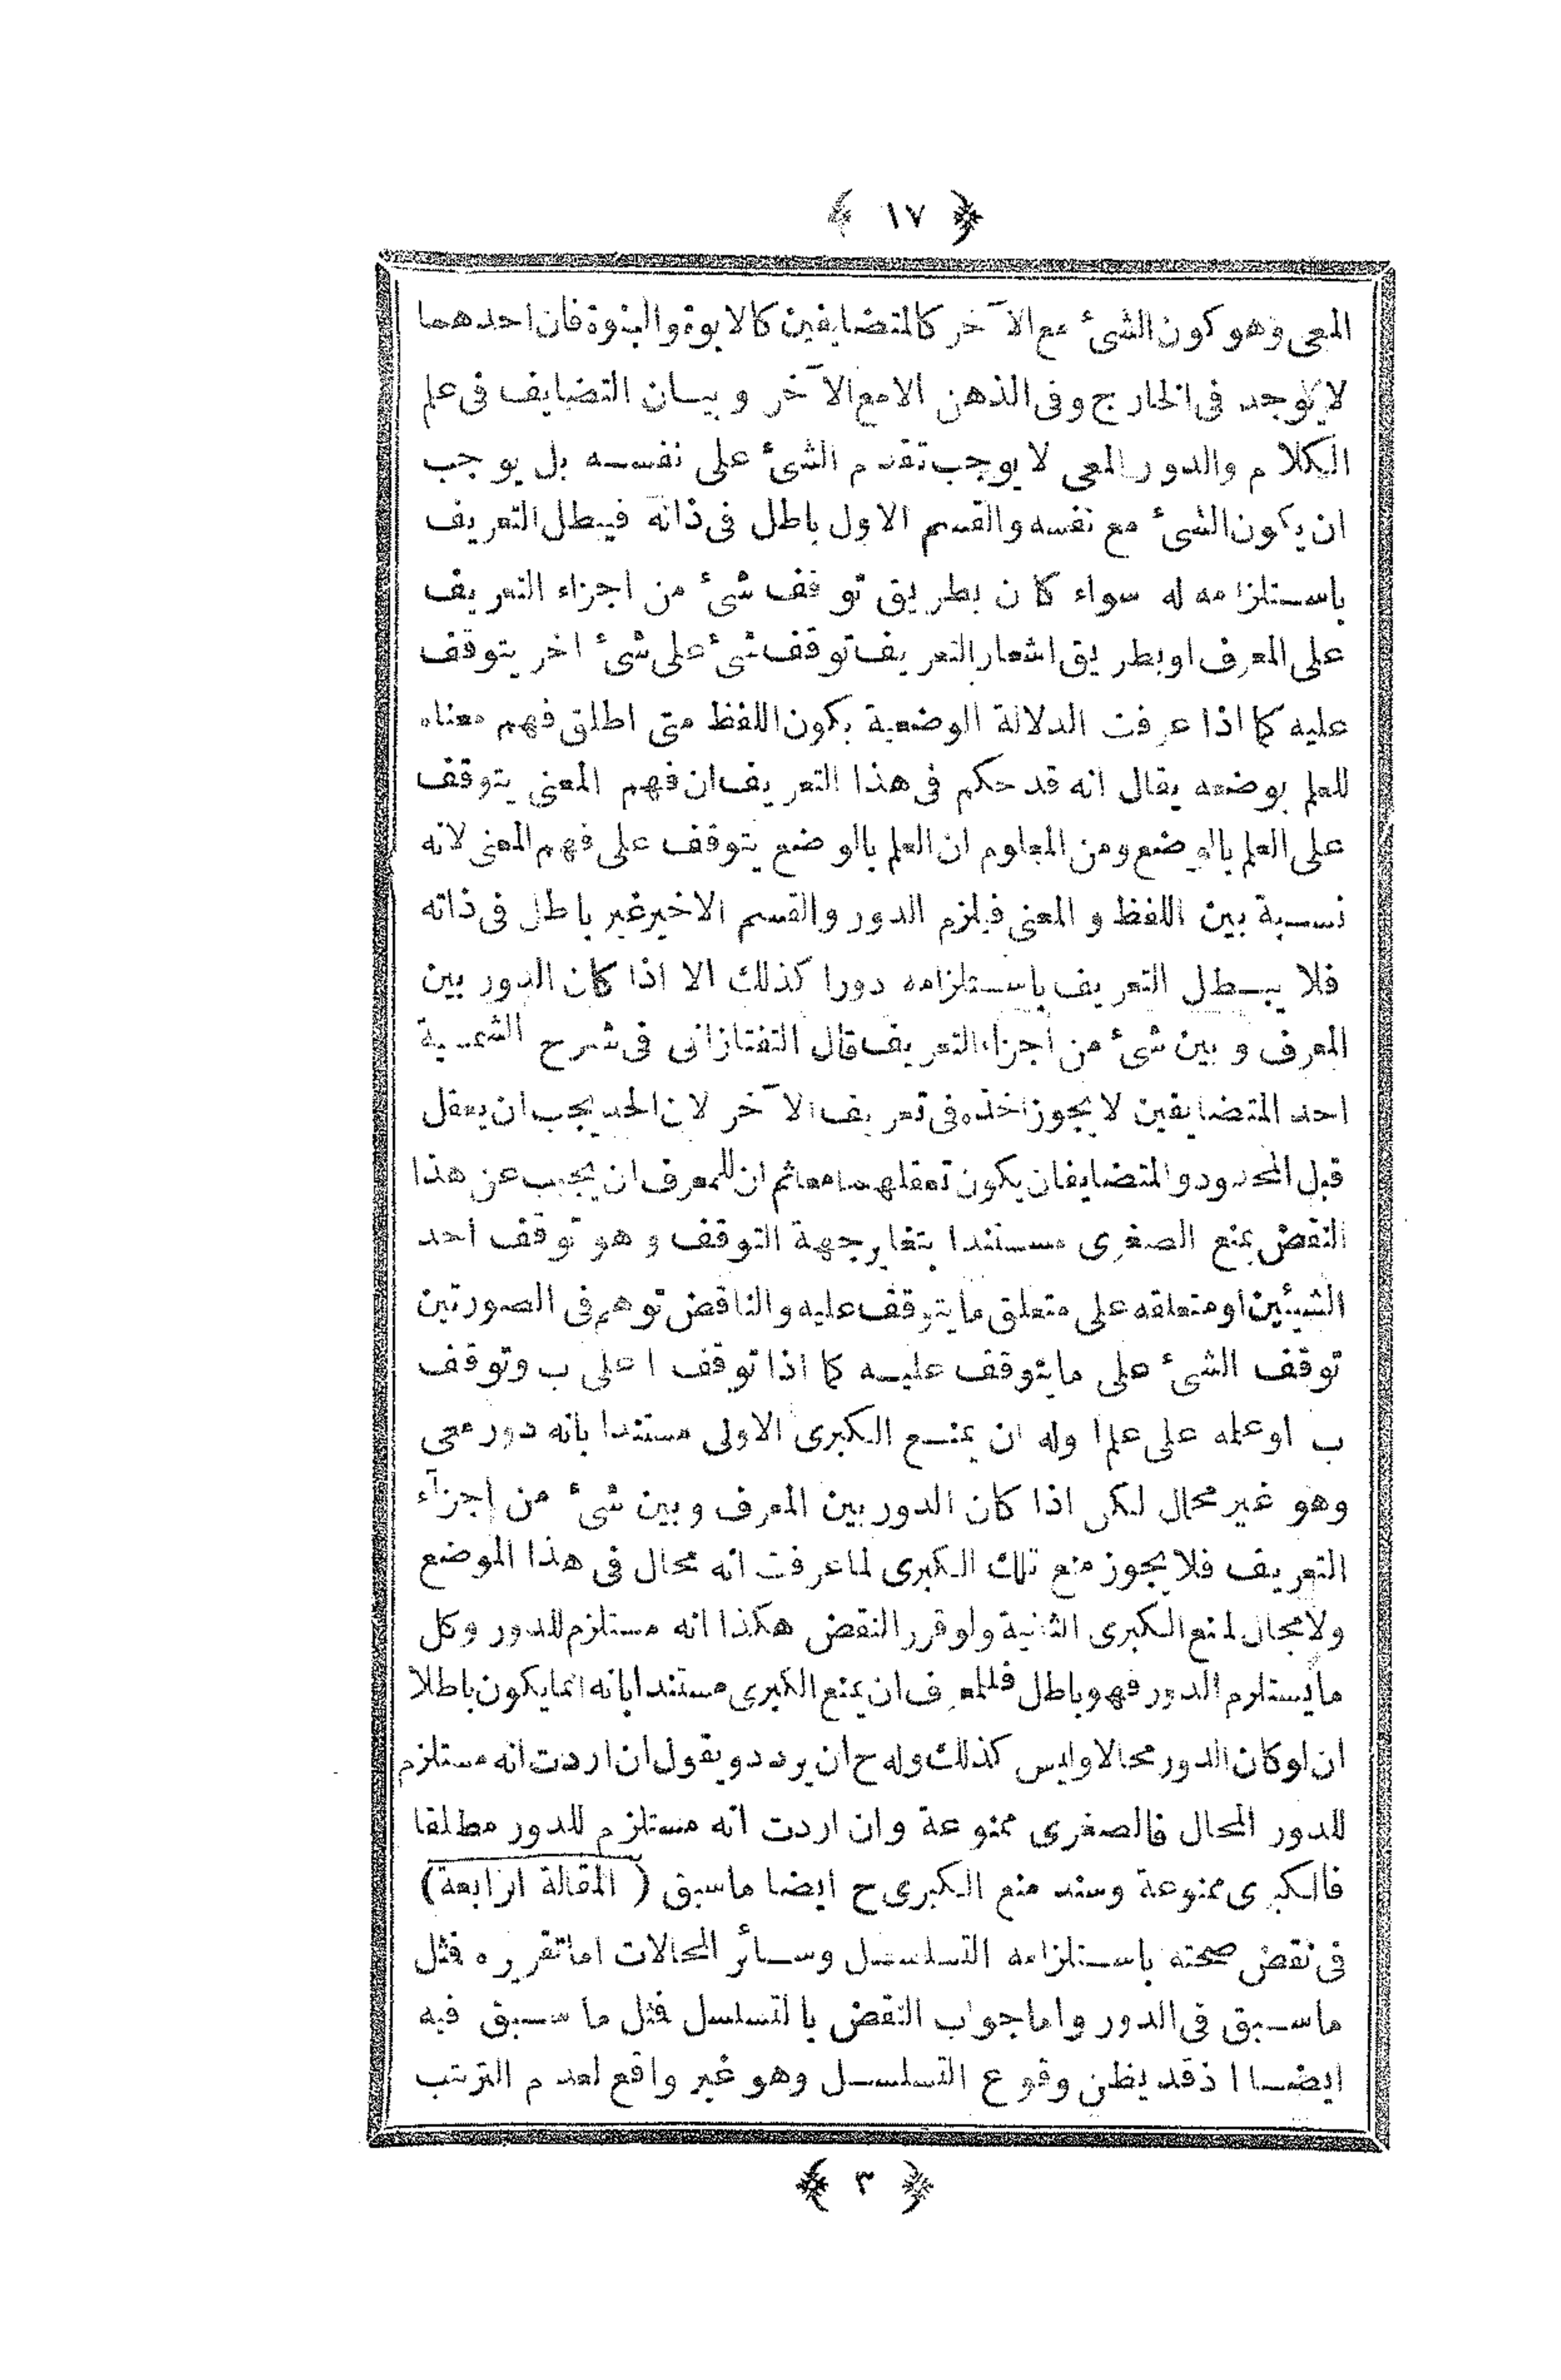 ﴿ ١٧ ﴾
المعى وهو كون الشئ مع الآخر كالمتضايفين كالابوة والبنوة فان احدهما
لا يوجد فى الخارج وفى الذهن الامع الآخر و بيان التضايف فى علم
الكلام والدور المعى لا يوجب تقدم الشئ على نفسه بل يوجب
ان يكون الشئ مع نفسه والقسم الاول باطل فى ذاته فيبطل التعريف
باستلزامه له سواء كان بطريق توقف شئ من اجزاء التعريف
على المعرف او بطريق اشعار التعريف توقف شئ على شئ اخر يتوقف
عليه كما اذا عرفت الدلالة الوضعية بكون اللفظ متى اطلق فهم معناه
للعلم بوضعه يقال انه قد حكم فى هذا التعريف ان فهم المعنى يتوقف
على العلم بالوضع ومن المعلوم ان العلم بالوضع يتوقف على فهم المعنى لانه
نسبة بين اللفظ و المعنى فيلزم الدور والقسم الاخير غير باطل فى ذاته
فلا يبطل التعريف باستلزامه دورا كذلك الا اذا كان الدور بين
المعرف و بين شئ من اجزاء التعريف قال التفتازانى فى شرح الشمسية
احد المتضايفين لا يجوز اخذه فى تعريف الآخر لان الحد يجب ان يعقل
قبل المحدود والمتضايفان يكون تعقلهما معا ثم ان للمعرف ان يجيب عن هذا
النقض بمنع الصغرى مستندا بتغاير جهة التوقف و هو توقف احد
الشيئين او متعلقه على متعلق ما يتوقف عليه والناقض توهم فى الصورتين
توقف الشئ على ما يتوقف عليه كما اذا توقف ا على ب وتوقف
ب او علمه على علم ا وله ان يمنع الكبرى الاولى مستندا بانه دور معى
وهو غير محال لكن اذا كان الدور بين المعرف و بين شئ من اجزآء
التعريف فلا يجوز منع تلك الكبرى لما عرفت انه محال فى هذا الموضع
ولا مجال لمنع الكبرى الثانية ولو قرر النقض هكذا انه مستلزم للدور وكل
ما يستلزم الدور فهو باطل فللمعرف ان يمنع الكبرى مستندا بانه انما يكون باطلا
ان لو كان الدور محالا وليس كذلك وله ح ان يردد و يقول ان اردت انه مستلزم
للدور المحال فالصغرى ممنوعة وان اردت انه مستلزم للدور مطلقا
فالكبرى ممنوعة وسند منع الكبرى ح ايضا ما سبق ( المقالة الرابعة )
فى نقض صحته باستلزامه التسلسل وسائر المحالات اما تقريره فمثل
ما سبق فى الدور واما جواب النقض بالتسلسل فمثل ما سبق فيه
ايضا اذ قد يظن وقوع التسلسل وهو غير واقع لعدم الترتب
﴿ ٣ ﴾